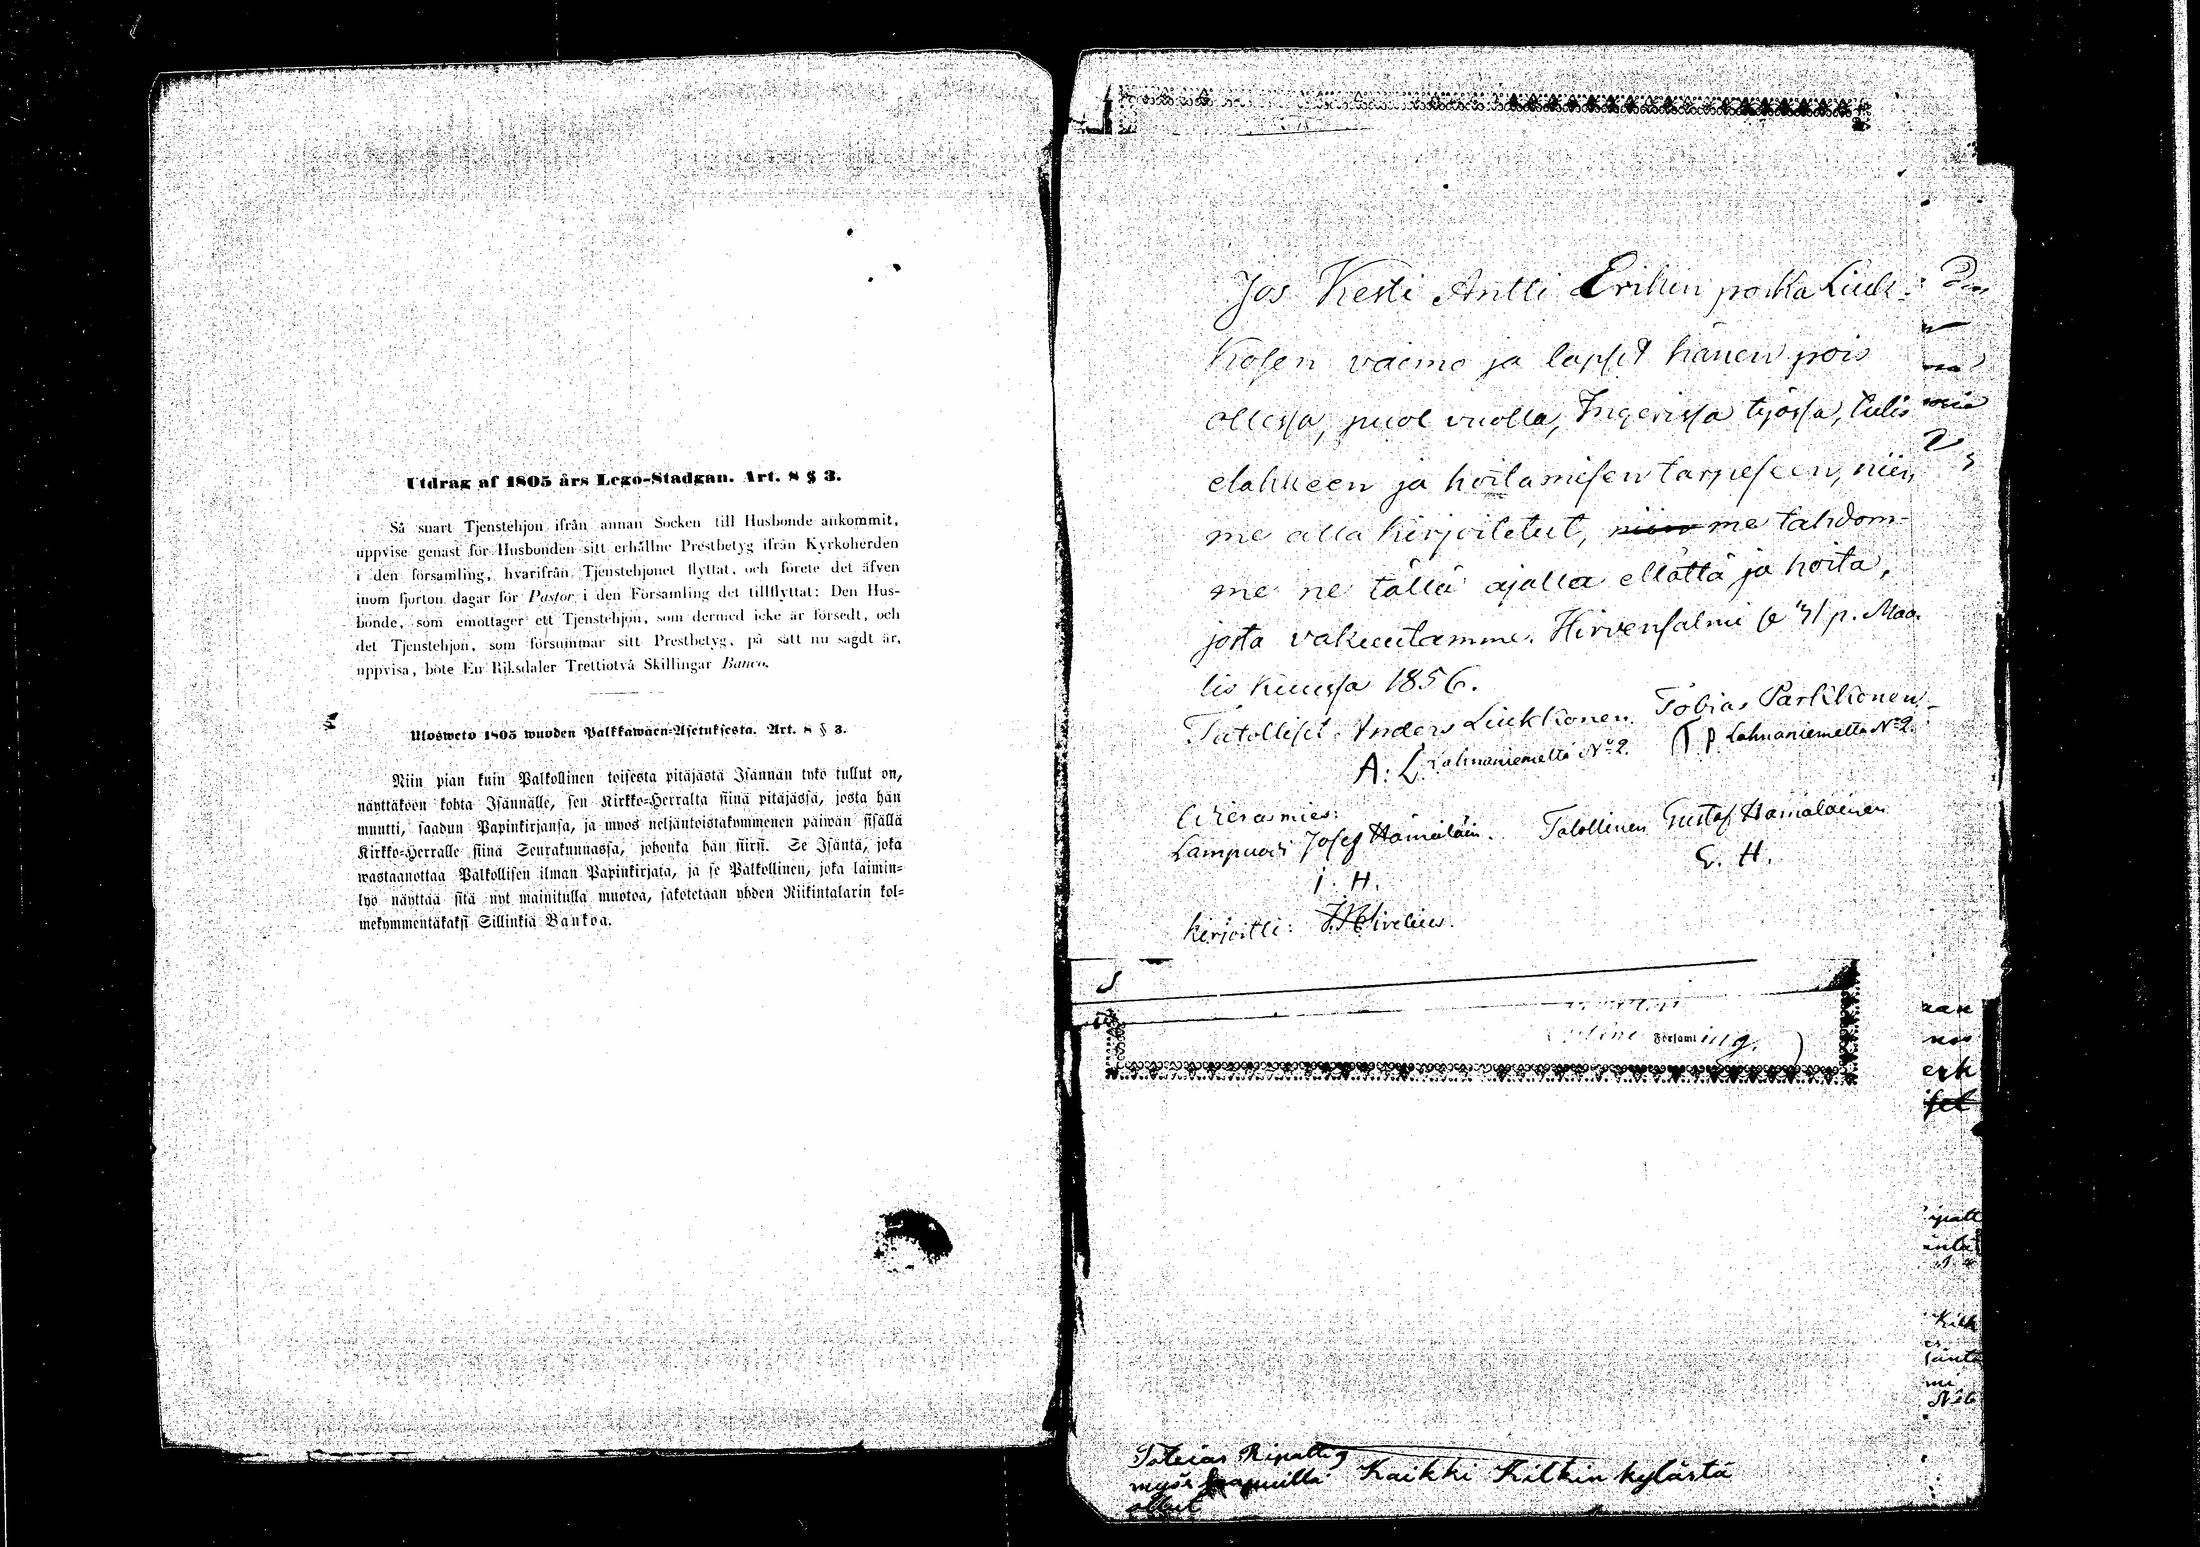 Utdrag af 1805 års Lego-Stadgan. Art. 8 § 3.
Så snart Tjenstehjon ifrån annan Socken till Husbonde ankommit,
uppvise genast för Husbonden sitt erhållne Prestbetyg ifrån Kyrkoherden
i den församling, hvarifrån Tjenstehjonet flyttat, och förete det äfven
inom fjorton dagar för Pastor i den Församling det tillflyttat: Den Hus-
bonde, som emottager ett Tjenstehjon, som dermed icke är försedt, och
det Tjenstehjon, som försummar sitt Prestbetyg, på sätt nu sagdt är,
uppvisa, böte En Riksdaler Trettiotvå Skillingar Banco.
Ulosweto 1805 wuoden Palkkawäen-Asetuksesta. Art. 8 § 3.
Niin pian kuin Palkollinen toisesta pitäjästä Isännän tykö tullut on,
näyttäköön kohta Isännälle, sen Kirkko-Herralta siinä pitäjässä, josta hän
muutti, saadun Papinkirjansa, ja myös neljäntoistakymmenen päiwän sisällä
Kirkko-Herralle siinä Seurakunnassa, johonka hän siirsi. Se Isäntä, joka
wastaanottaa Palkollisen ilman Papinkirjata, ja se Palkollinen, joka laimin-
lyö näyttää sitä nyt mainitulla muotoa, sakotetaan yhden Riikintalarin kol-
mekymmentäkaksi Sillinkiä Bankoa.
Jos Kesti Antti Erikin poika Liuk-
kosen vaimo ja lapset hänen pois
ollessa, puol vuolla, Ingerissa työssä, tulis
elakkeen ja hoitamisen tarpeseen, niin
me alla kirjoitetut, niin me tahdom-
me ne tällä ajalla ellättä ja hoita,
josta vakuutamme. Hirvensalmi se 31 p. Maa-
lis kuussa 1856.
Talolliset Anders Liukkonen Tobias Parkkonen
A. L. Lahnaniemeltä No 2. T P Lahnaniemeltä No 2.
Vierasmies:
Lampuodi Josef Hämäläin. Talollinen Gustaf Hämäläinen
I. H. G. H.
kirjoitti:
Församling.
Kaikki Kilkin kylästä
myös
ollut